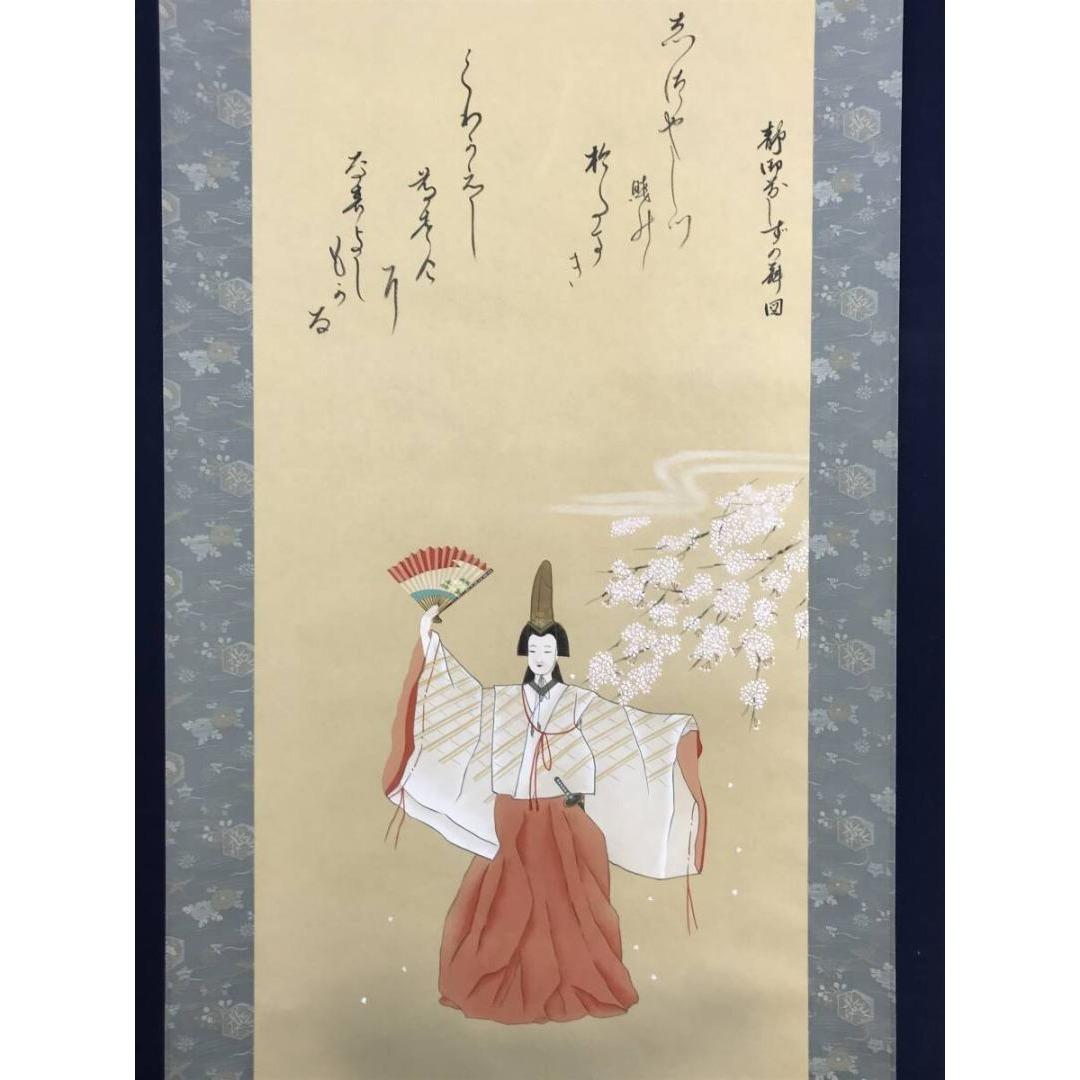 静御前しずの舞図
しづやしづ
賤の
おだまき
くりかえし
昔を今
に
なすよし
もかな